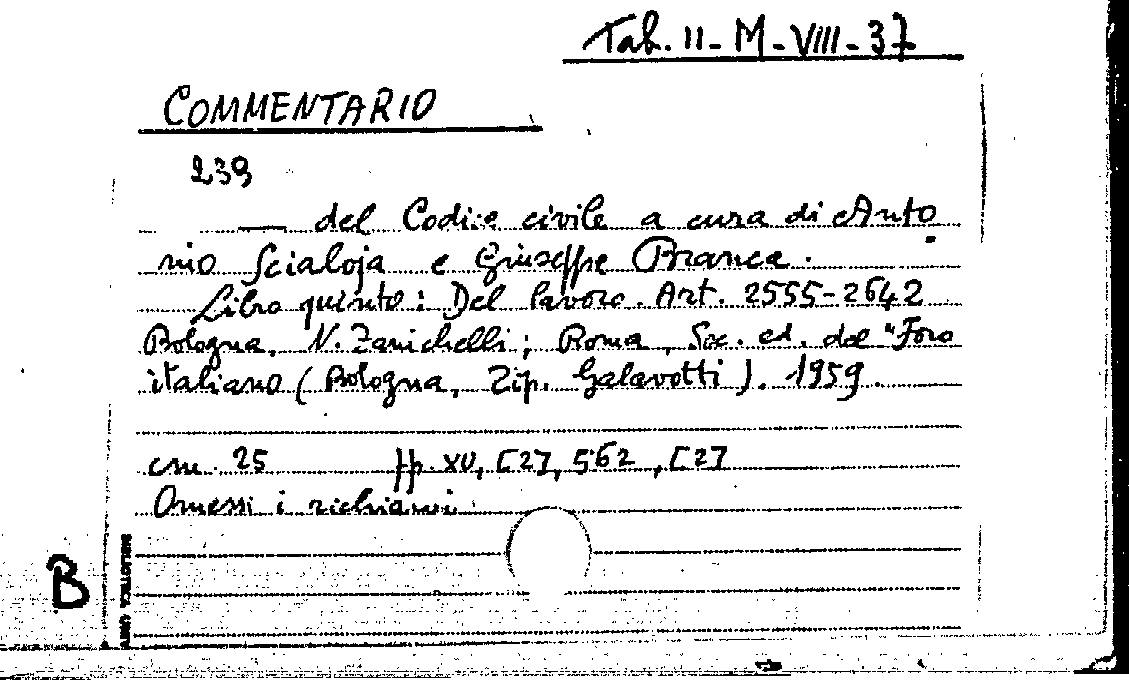 Tab. II - M - VIII - 37
COMMENTARIO
239
___ del Codice civile a cura di Anto
nio Scialoja e Giuseppe Branca.
Libro quinto: Del lavoro. Art. 2555-2642
Bologna, N. Zanichelli; Roma, Soc. ed. del "Foro
italiano (Bologna, Tip. Galavotti). 1959.
cm. 25 pp. XV, [2], 562, [2]
Omessi i richiami.
B